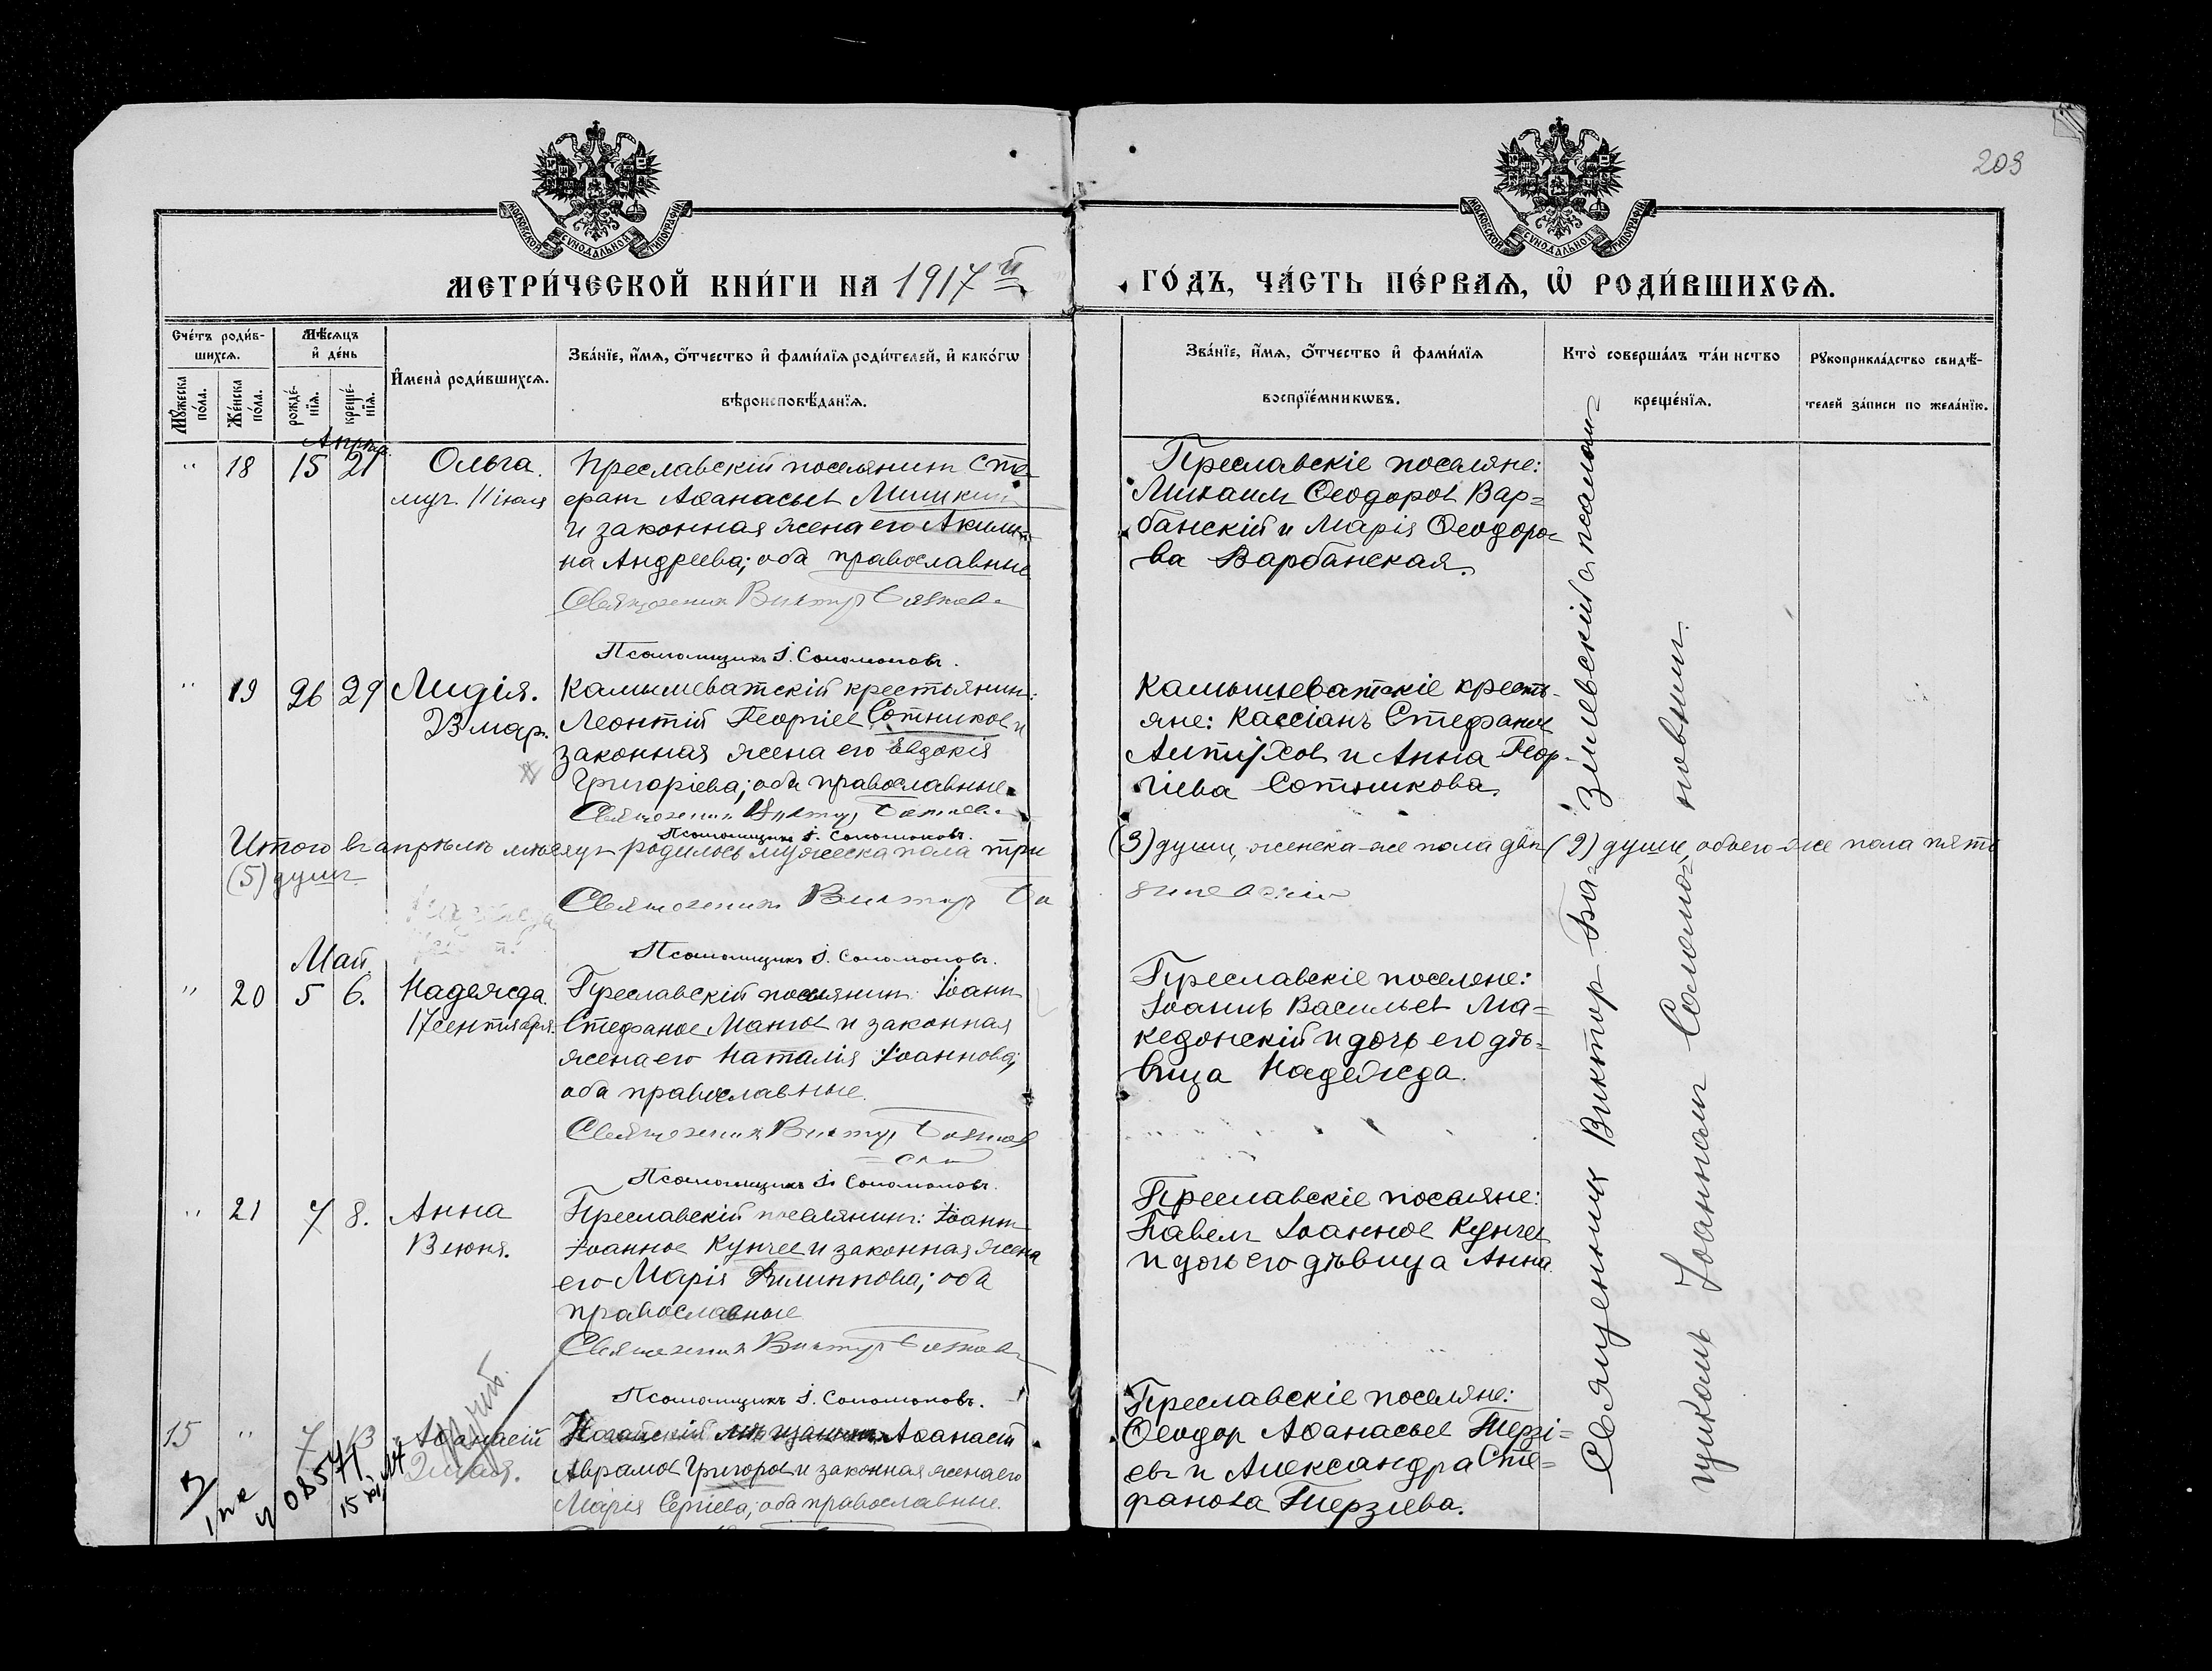 209
МОСКОВСКОЙ СѴНОДАЛЬНОЙ ТИПОГРАФІИ
МОСКОВСКОЙ СѴНОДАЛЬНОЙ ТИПОГРАФІИ
МЕТРИ́ЧЕСКОЙ КНИ́ГИ НА 1917й
ГО́ДЪ, ЧА́СТЬ ПЕ́РВАѦ, Ѽ РОДИ́ВШИХСѦ.
Сче́тъ роди́в-
шихсѧ.
Мꙋ́жеска
по́ла.
Же́нска
по́ла.
Мѣ́сѧцъ
и҆ де́нь
рожде́-
нїѧ.
креще́-
нїѧ.
И҆мена̀ роди́вшихсѧ.
Зва́нїе, и҆́мѧ, ѻ҆́тчество и҆ фами́лїѧ роди́телей, и҆ како́гѡ
вѣроисповѣ́данїѧ.
Зва́нїе, и҆́мѧ, ѻ҆́тчество и҆ фами́лїѧ
воспрїе́мникѡвъ.
Кто̀ соверша́лъ та́инство
креще́нїѧ.
Рꙋкоприкла́дство свидѣ́-
телей за́писи по жела́нїю.
" 18 15 21 Ольга.
муч. 11 іюля
Преславскій поселянинъ Сте-
фанъ Аѳанасьевъ Мишкин
и законная жена его Акили-
на Андреева; оба православные
Псаломщикъ І. Соломоновъ.
Преславскіе поселяне:
Михаилъ Ѳеодоровъ Вар=
банскій и Марія Ѳеодоро=
ва Варбанская.
" 19 26 29 Лидія.
23 мар.
Камышеватскій крестьянинъ:
Леонтій Георгіев Сотников и
законная жена его Евдокія
Григоріева; оба православные.
Псаломщикъ І. Соломоновъ.
Камышеватскіе кресть-
яне: Кассіанъ Стефанов
и Анна Геор-
гіева Сотникова.
Итого въ апрѣлѣ мѣсяцѣ родилось мужеска пола три
(3) души, женска-же пола двѣ (2) души, обоего-же пола пять
(5) душъ.
Священникъ Виктор
Псаломщикъ І. Соломоновъ.
Май
" 20 5 6. Надежда
17 сентября.
Преславскій поселянинъ Іоаннъ
Стефанов Мангов и законная
жена его Наталія Іоаннова;
оба православные.
Священникъ Виктор
Псаломщикъ І. Соломоновъ.
Преславскіе поселяне:
Іоаннъ Васильев Ма=
кедонскій и дочь его дѣ=
вица Надежда.
" 21 7 8. Анна
3 іюня.
Преславскій поселянинъ: Іоаннъ
Іоаннов Кунчев и законная жена
его Марія Филиппова; оба
православные
Священникъ Виктор
Псаломщикъ І. Соломоновъ.
Преславскіе поселяне:
Павелъ Іоаннов Кунчев
и дочь его дѣвица Анна.
15 " 7 13 Аѳанасій
2 мая.
Ногайскій мѣщанинъ Аѳанасій
Аврамов Григоров и законная жена его
Марія Сергіева; оба православные.
Преславскіе поселяне:
Ѳеодор Аѳанасьев Терзі=
евъ и Александра Сте=
фанова Терзіева.
Священникъ Виктор Ба=зилевскій с псалом=
щикомъ Іоанномъ Соломо=новымъ.